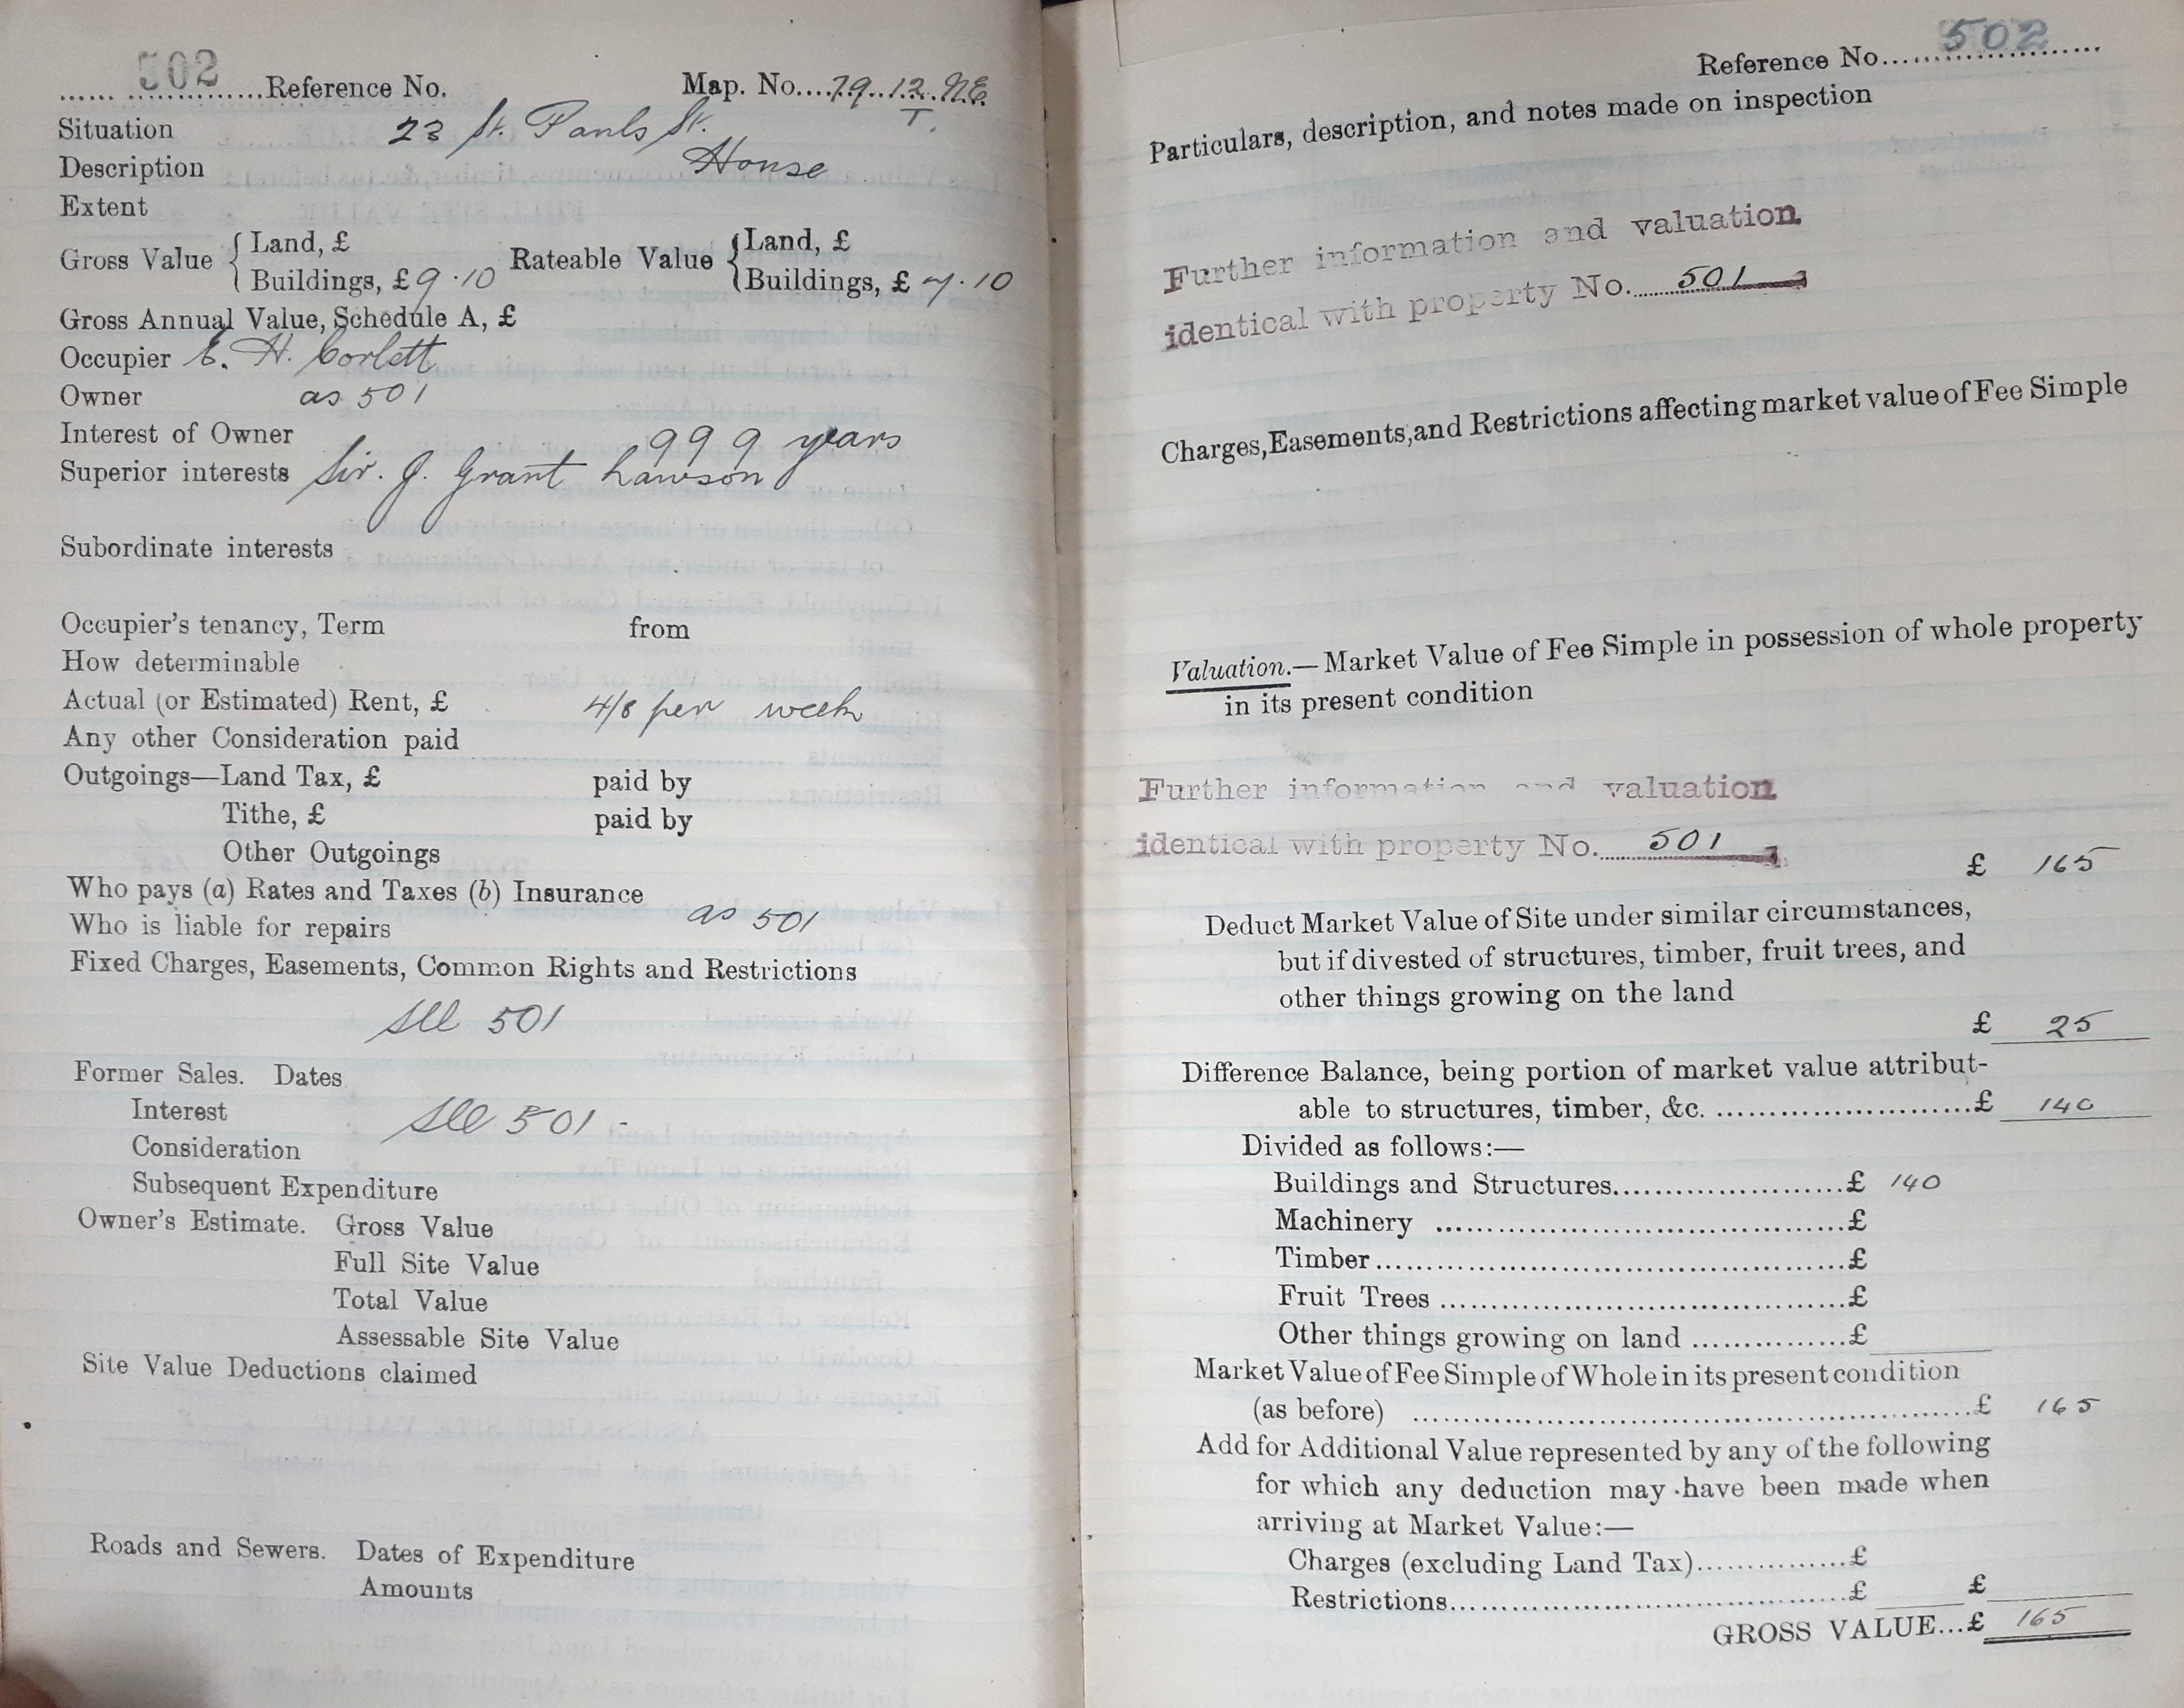 502 Reference No. Map. No. 79.12.NE
T.
Situation 23 St. Pauls St.
Description House
Extent
Gross Value { Land, £ Rateable Value { Land, £
Buildings, £ 9.10 Buildings, £ 7.10
Gross Annual Value, Schedule A, £
Occupier E. H. Corlett
Owner as 501
Interest of Owner 999 years
Superior interests Sir. J. Grant Lawson
Subordinate interests
Occupier's tenancy, Term from
How determinable
Actual (or Estimated) Rent, £ 4/8 per week
Any other Consideration paid
Outgoings—Land Tax, £ paid by
Tithe, £ paid by
Other Outgoings
Who pays (a) Rates and Taxes (b) Insurance
as 501
Who is liable for repairs
Fixed Charges, Easements, Common Rights and Restrictions
see 501
Former Sales. Dates
Interest see 501 -
Consideration
Subsequent Expenditure
Owner's Estimate. Gross Value
Full Site Value
Total Value
Assessable Site Value
Site Value Deductions claimed
Roads and Sewers. Dates of Expenditure
Amounts
Reference No. 502
Particulars, description, and notes made on inspection
Further information and valuation
identical with property No. 501
Charges, Easements, and Restrictions affecting market value of Fee Simple
Valuation.—Market Value of Fee Simple in possession of whole property
in its present condition
Further information and valuation
identical with property No. 501
£ 165
Deduct Market Value of Site under similar circumstances,
but if divested of structures, timber, fruit trees, and
other things growing on the land
£ 25
Difference Balance, being portion of market value attribut-
able to structures, timber, &c. £ 140
Divided as follows:—
Buildings and Structures £ 140
Machinery £
Timber £
Fruit Trees £
Other things growing on land £
Market Value of Fee Simple of Whole in its present condition
(as before) £ 165
Add for Additional Value represented by any of the following
for which any deduction may have been made when
arriving at Market Value:—
Charges (excluding Land Tax) £
Restrictions £ £
GROSS VALUE...£ 165